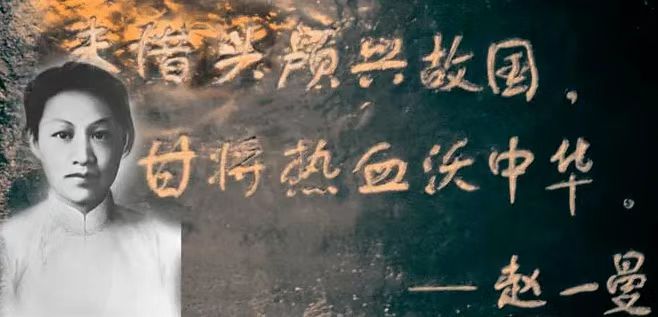 未惜头颅兴故国，
甘将热血沃中华。
——赵一曼